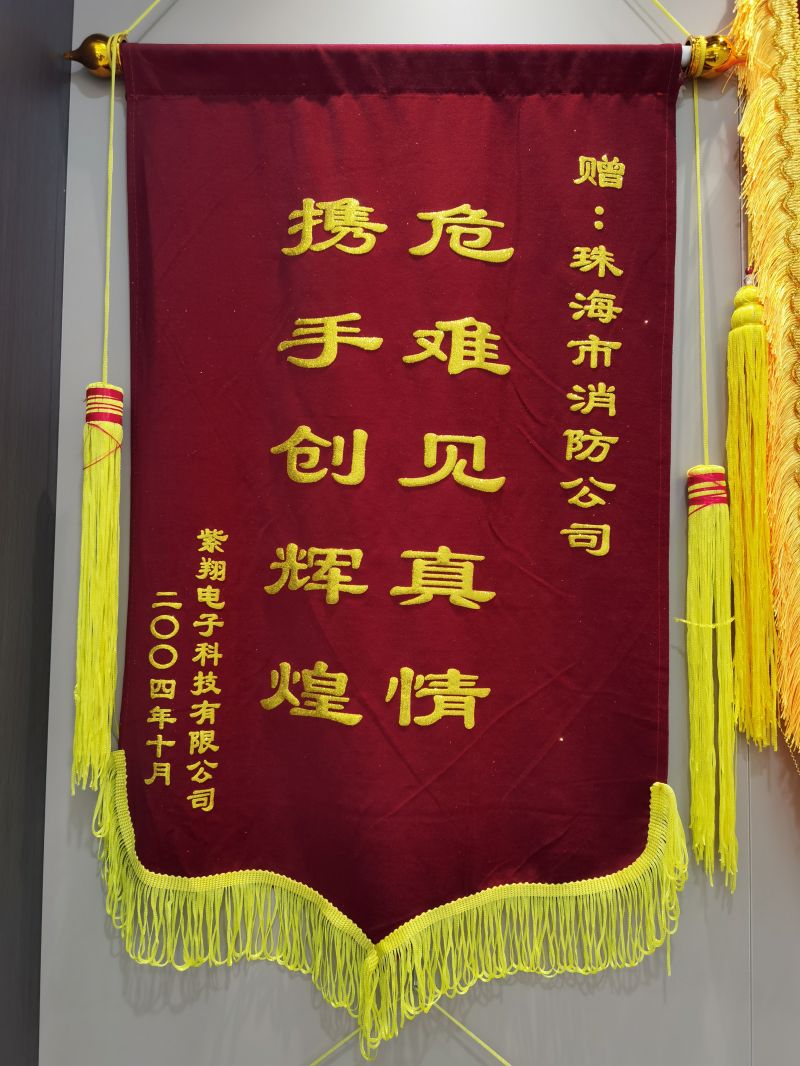 赠：珠海市消防公司
危难见真情
携手创辉煌
紫翔电子科技有限公司
二〇〇四年十月